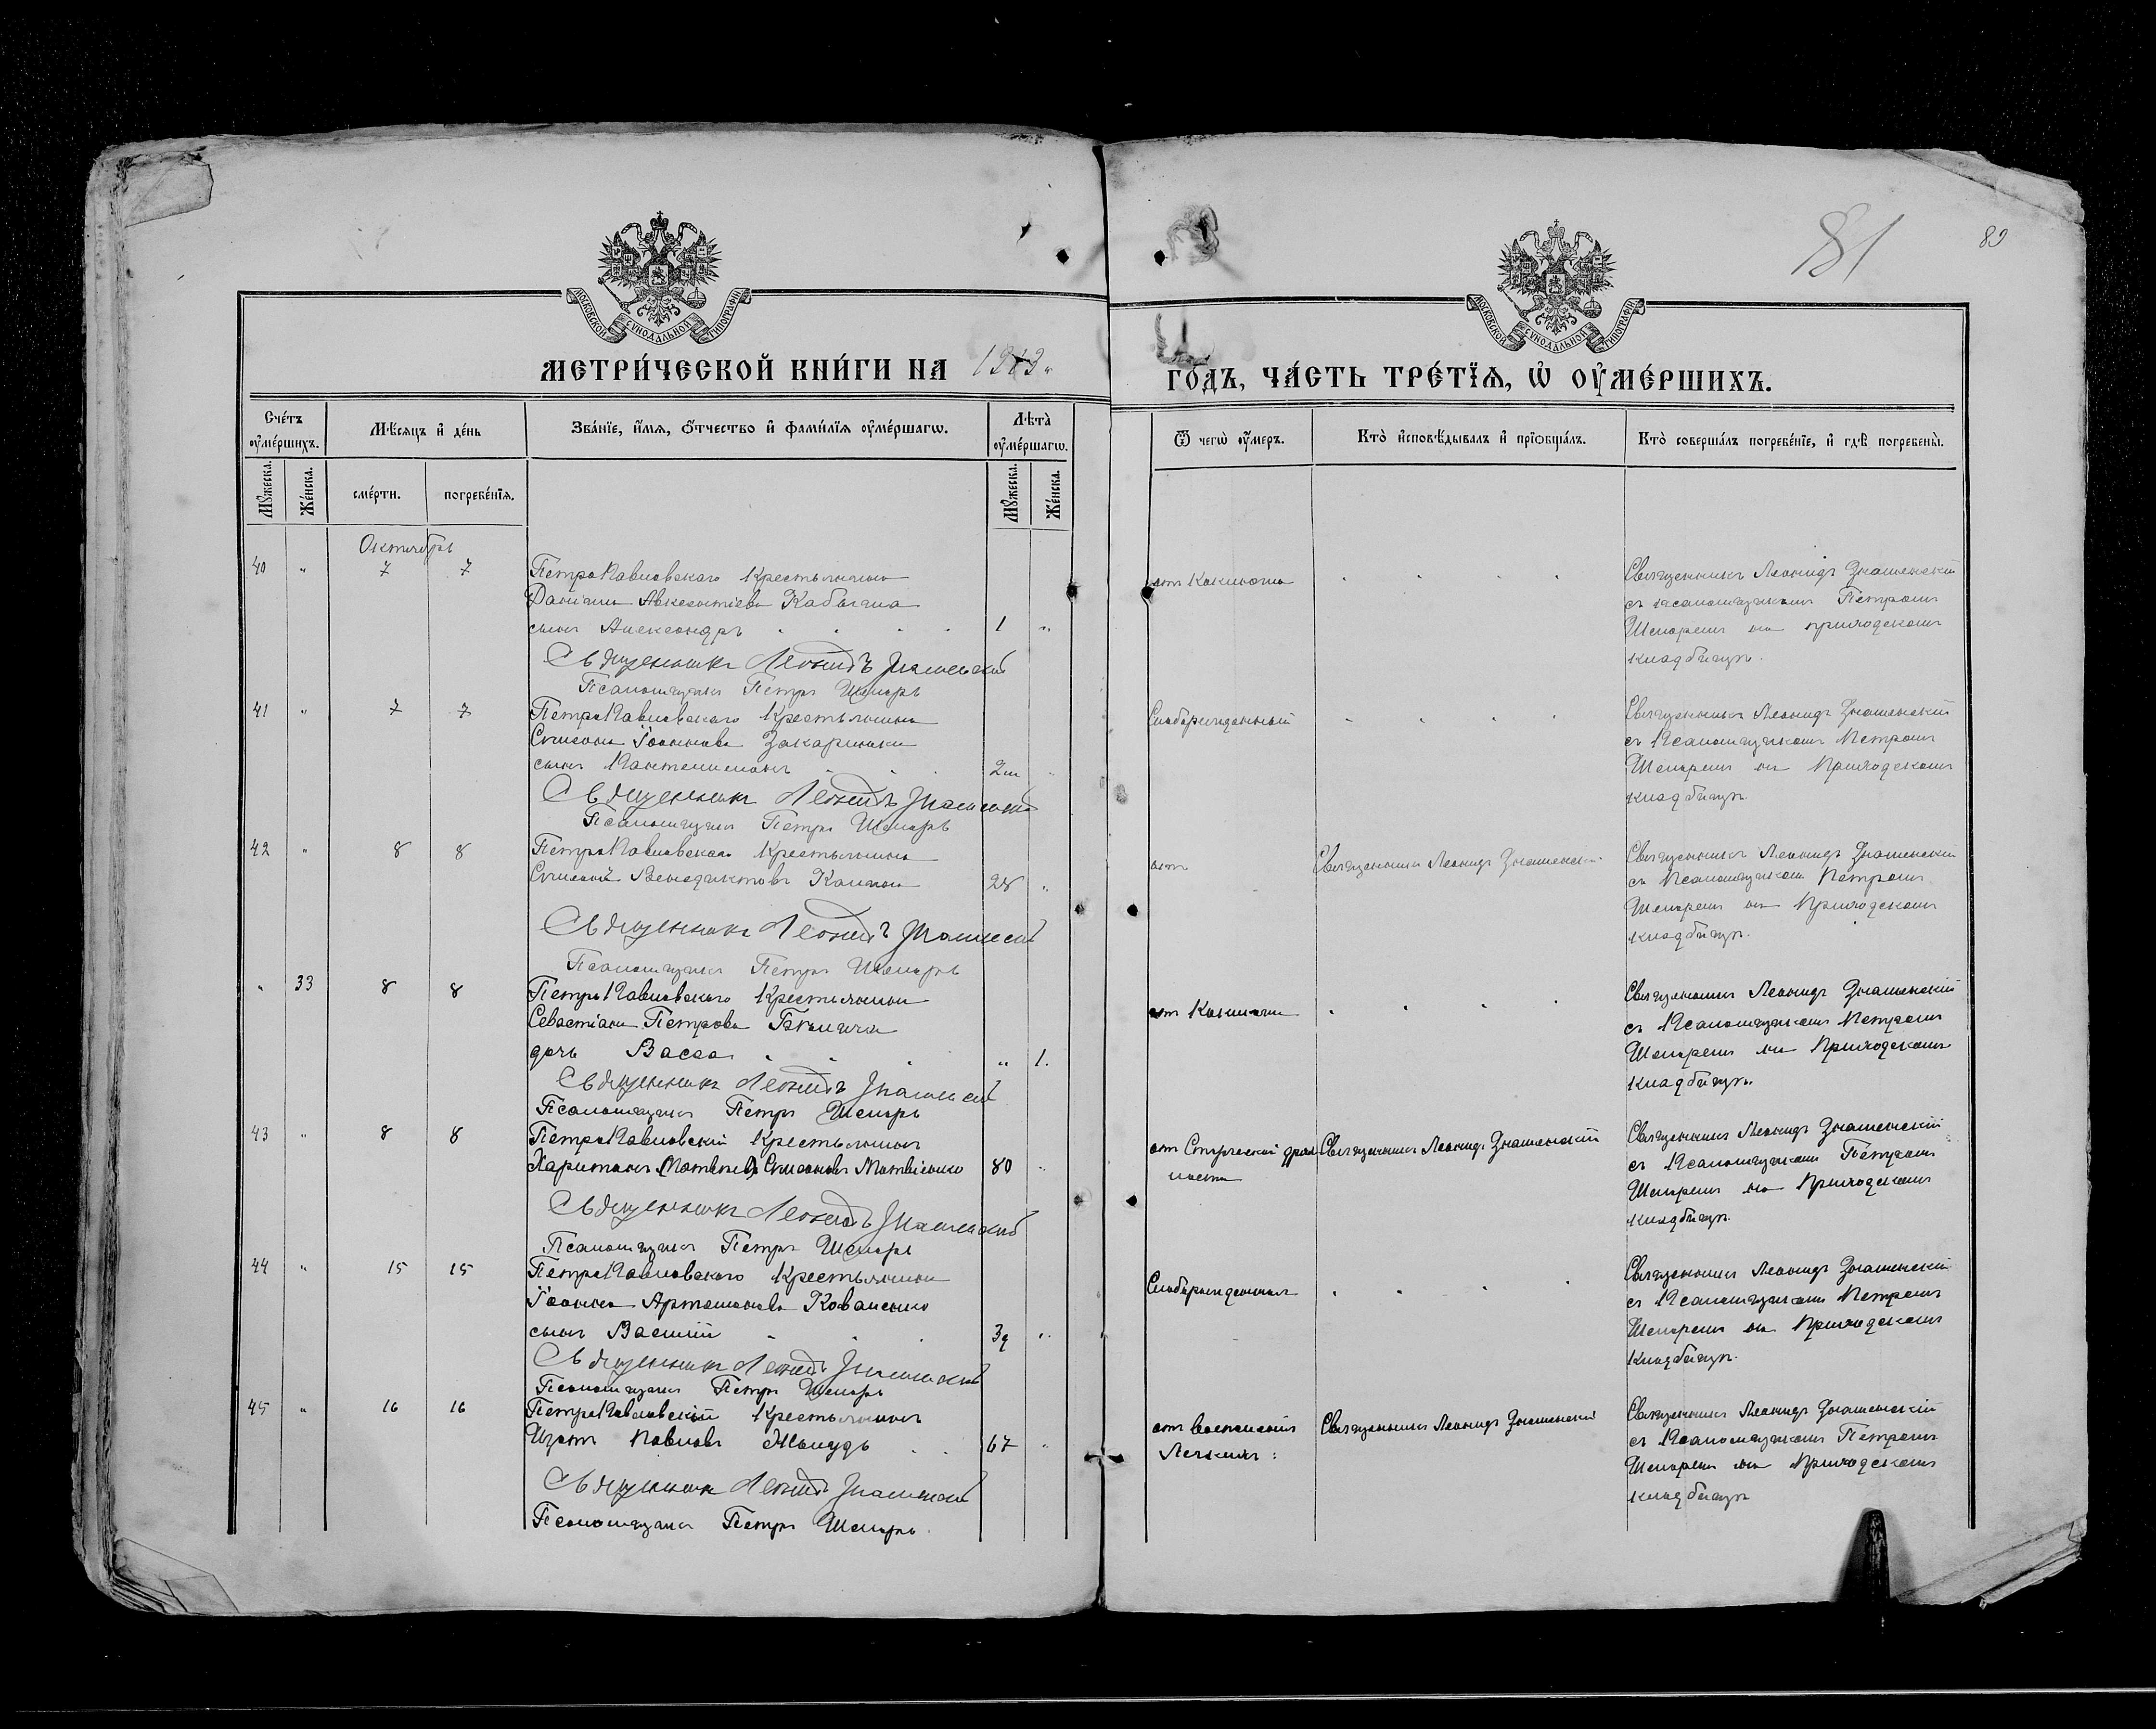 81
89
МОСКОВСКОЙ СѴНОДАЛЬНОЙ ТИПОГРАФІИ
МОСКОВСКОЙ СѴНОДАЛЬНОЙ ТИПОГРАФІИ
МЕТРИ́ЧЕСКОЙ КНИ́ГИ НА 1913 г.
ГО́ДЪ, ЧА́СТЬ ТРЕ́ТЇѦ, Ѡ҆ ОУ҆МЕ́РШИХЪ.
Сче́тъ оу҆ме́ршихъ.
Мѣ́сѧцъ и҆ де́нь
Зва́нїе, и҆́мѧ, ѻ҆́тчество и҆ фами́лїѧ оу҆ме́ршагѡ.
Лѣ́та оу҆ме́ршагѡ.
Мꙋ́жеска.
Же́нска.
сме́рти.
погребе́нїѧ.
Мꙋ́жеска.
Же́нска.
Ѿ чегѡ̀ оу҆́меръ.
Кто̀ и҆сповѣ́дывалъ и҆ прїѡбща́лъ.
Кто̀ соверша́лъ погребе́нїе, и҆ гдѣ̀ погребены̀.
Октября
40 " 7 7 Петропавловскаго Крестьянина
Даніила Авксентіева Кабычла
сынъ Александръ 1 "
Священникъ Леонидъ Знаменскій
Псаломщикъ Петръ Шепаръ
от Коклюша
Священникъ Леонидъ Знаменскій
съ псаломщикомъ Петромъ
Шепаремъ на приходскомъ
кладбищѣ.
41 " 7 7 Петропавловскаго Крестьянина
Симеона Іоаннова Захарченки
сынъ Пантелеимонъ 2 м
Священникъ Леонидъ Знаменскій
Псаломщикъ Петръ Шепаръ
Слаборожденный
Священникъ Леонидъ Знаменскій
съ Псаломщикомъ Петромъ
Шепаремъ на Приходскомъ
кладбищѣ.
42 " 8 8 Петропавловскаго Крестьянина
Симеонъ Венедиктовъ 28 "
Священникъ Леонидъ Знаменскій
Псаломщикъ Петръ Шепаръ
от
Священникъ Леонидъ Знаменскій
Священникъ Леонидъ Знаменскій
съ Псаломщикомъ Петромъ
Шепаремъ на Приходскомъ
кладбищѣ.
" 33 8 8 Петропавловскаго Крестьянина
Севастіана Петрова
дочь Васса " 1.
Священникъ Леонидъ Знаменскій
Псаломщикъ Петръ Шепаръ
от Коклюша
Священникъ Леонидъ Знаменскій
съ Псаломщикомъ Петромъ
Шепаремъ на Приходскомъ
кладбищѣ.
43 " 8 8 Петропавловскій Крестьянинъ
Харитонъ (Матвѣевъ) Симеоновъ Матвіенко 80 "
Священникъ Леонидъ Знаменскій
Псаломщикъ Петръ Шепаръ
от Старческой дрях
лости
Священникъ Леонидъ Знаменскій
Священникъ Леонидъ Знаменскій
съ Псаломщикомъ Петромъ
Шепаремъ на Приходскомъ
кладбищѣ.
44 " 15 15 Петропавловскаго Крестьянина
Іоанна Артамонова Коваленко
сынъ Василій 3д "
Священникъ Леонидъ Знаменскій
Псаломщикъ Петръ Шепаръ
Слаборожденный
Священникъ Леонидъ Знаменскій
съ Псаломщикомъ Петромъ
Шепаремъ на Приходскомъ
кладбищѣ.
45 " 16 16 Петропавловскій Крестьянинъ
Игнатъ Павловъ Жмудь 67 "
Священникъ Леонидъ Знаменскій
Псаломщикъ Петръ Шепаръ
от воспаленія
Легкихъ:
Священникъ Леонидъ Знаменскій
Священникъ Леонидъ Знаменскій
съ Псаломщикомъ Петромъ
Шепаремъ на Приходскомъ
кладбищѣ